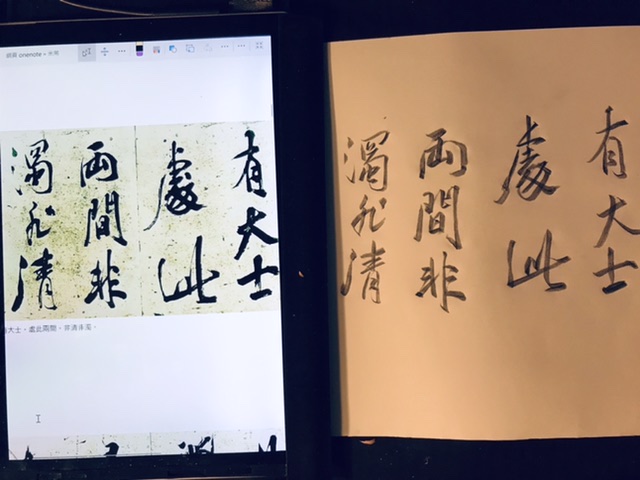 onenote
有大士
處此
両間非
濁非清
大士。處此兩間。非清非濁。
有大士
處此
両間非
濁非清